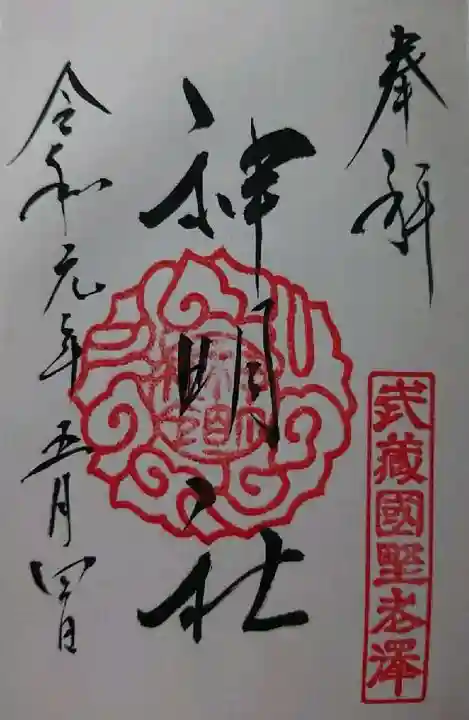 奉拜
武蔵國野老澤
神明社
令和元年五月四日